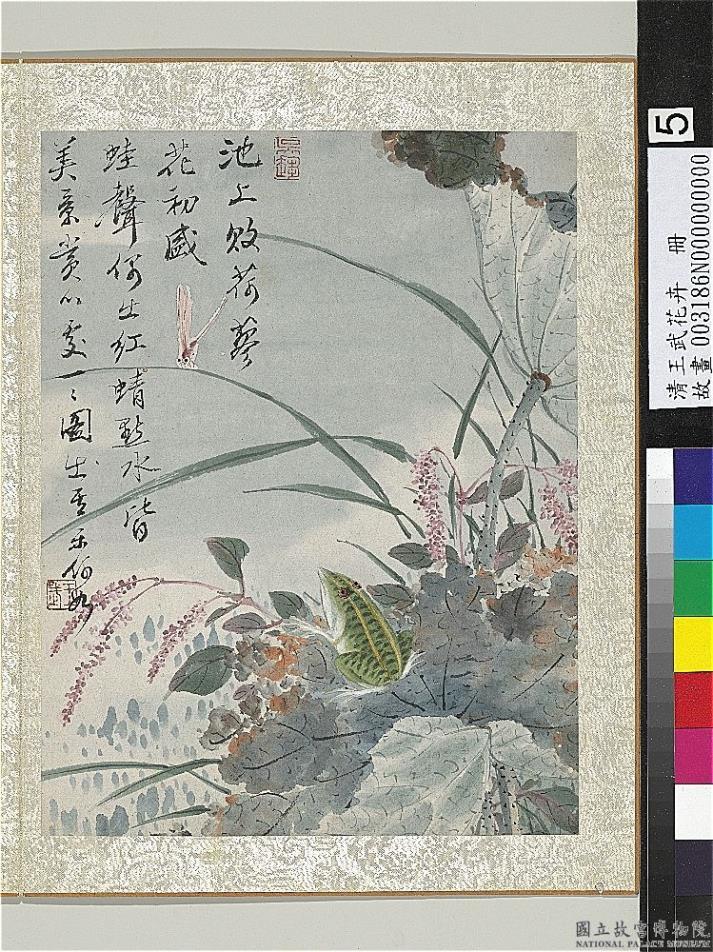 池上敗荷蓼
花初盛
蛙聲何止紅蜻點水皆
美景賞心處一一圖出
5
清王武花卉 冊
故畫003186N000000000
國立故宮博物院
NATIONAL PALACE MUSEUM